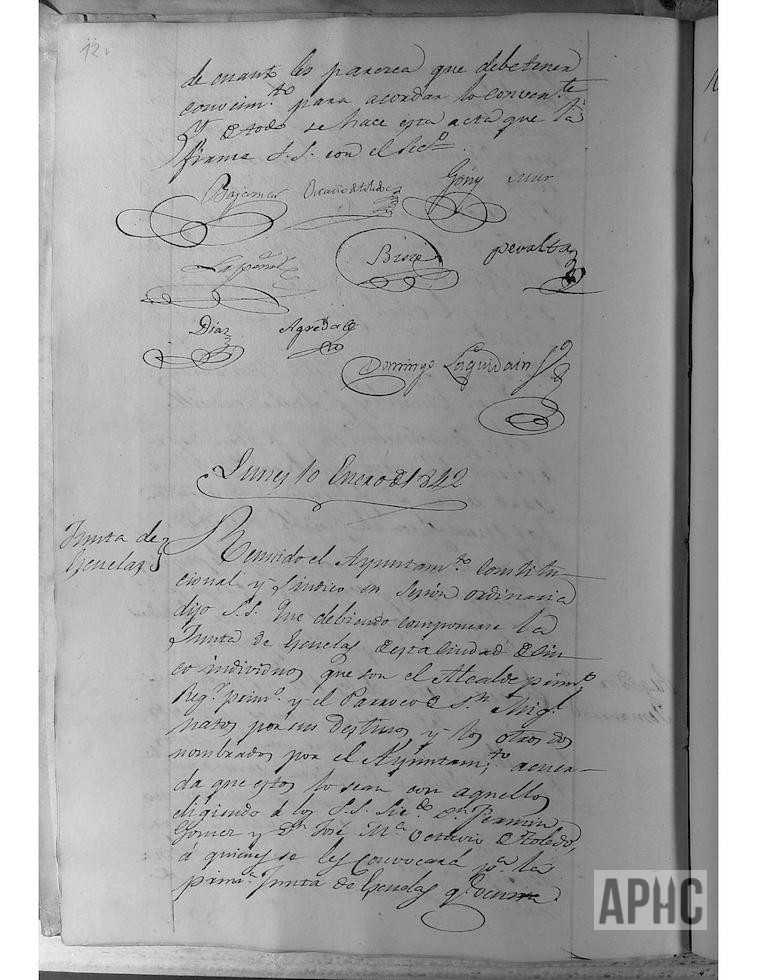 12v
de cuanto les parezca que debe tener
convenim.to para acordar lo conven.te
Y de todo se hace esta acta que la
firma S.S. con el Sec.o
Bajamar Octavio de Toledo Goñy Mur
Lapeña Bisié Peralta
Diaz Agreda
Domingo Laquidain
Lunes 10 Enero de 1842
Junta de
Escuelas
Reunido el Ayuntam.to Constitu-
cional y Sindico en Sesion ordinaria
dijo S.S. Que debiendo componerse la
Junta de Escuelas de esta Ciudad de cin-
co individuos que son el Alcalde prim.o
Reg.r prim.o y el Parroco de S.n Mig.l
natos por sus destinos y los otros dos
nombrados por el Ayuntam.to acuer-
da que estos lo sean con aquellos
eligiendo a los S.S. Lic.do D.n Fermin
Gomez y D.n José M.a Octavio de Toledo,
á quienes se les convocará p.a la
prim.a Junta de Escuelas q.e ocurra
APHC